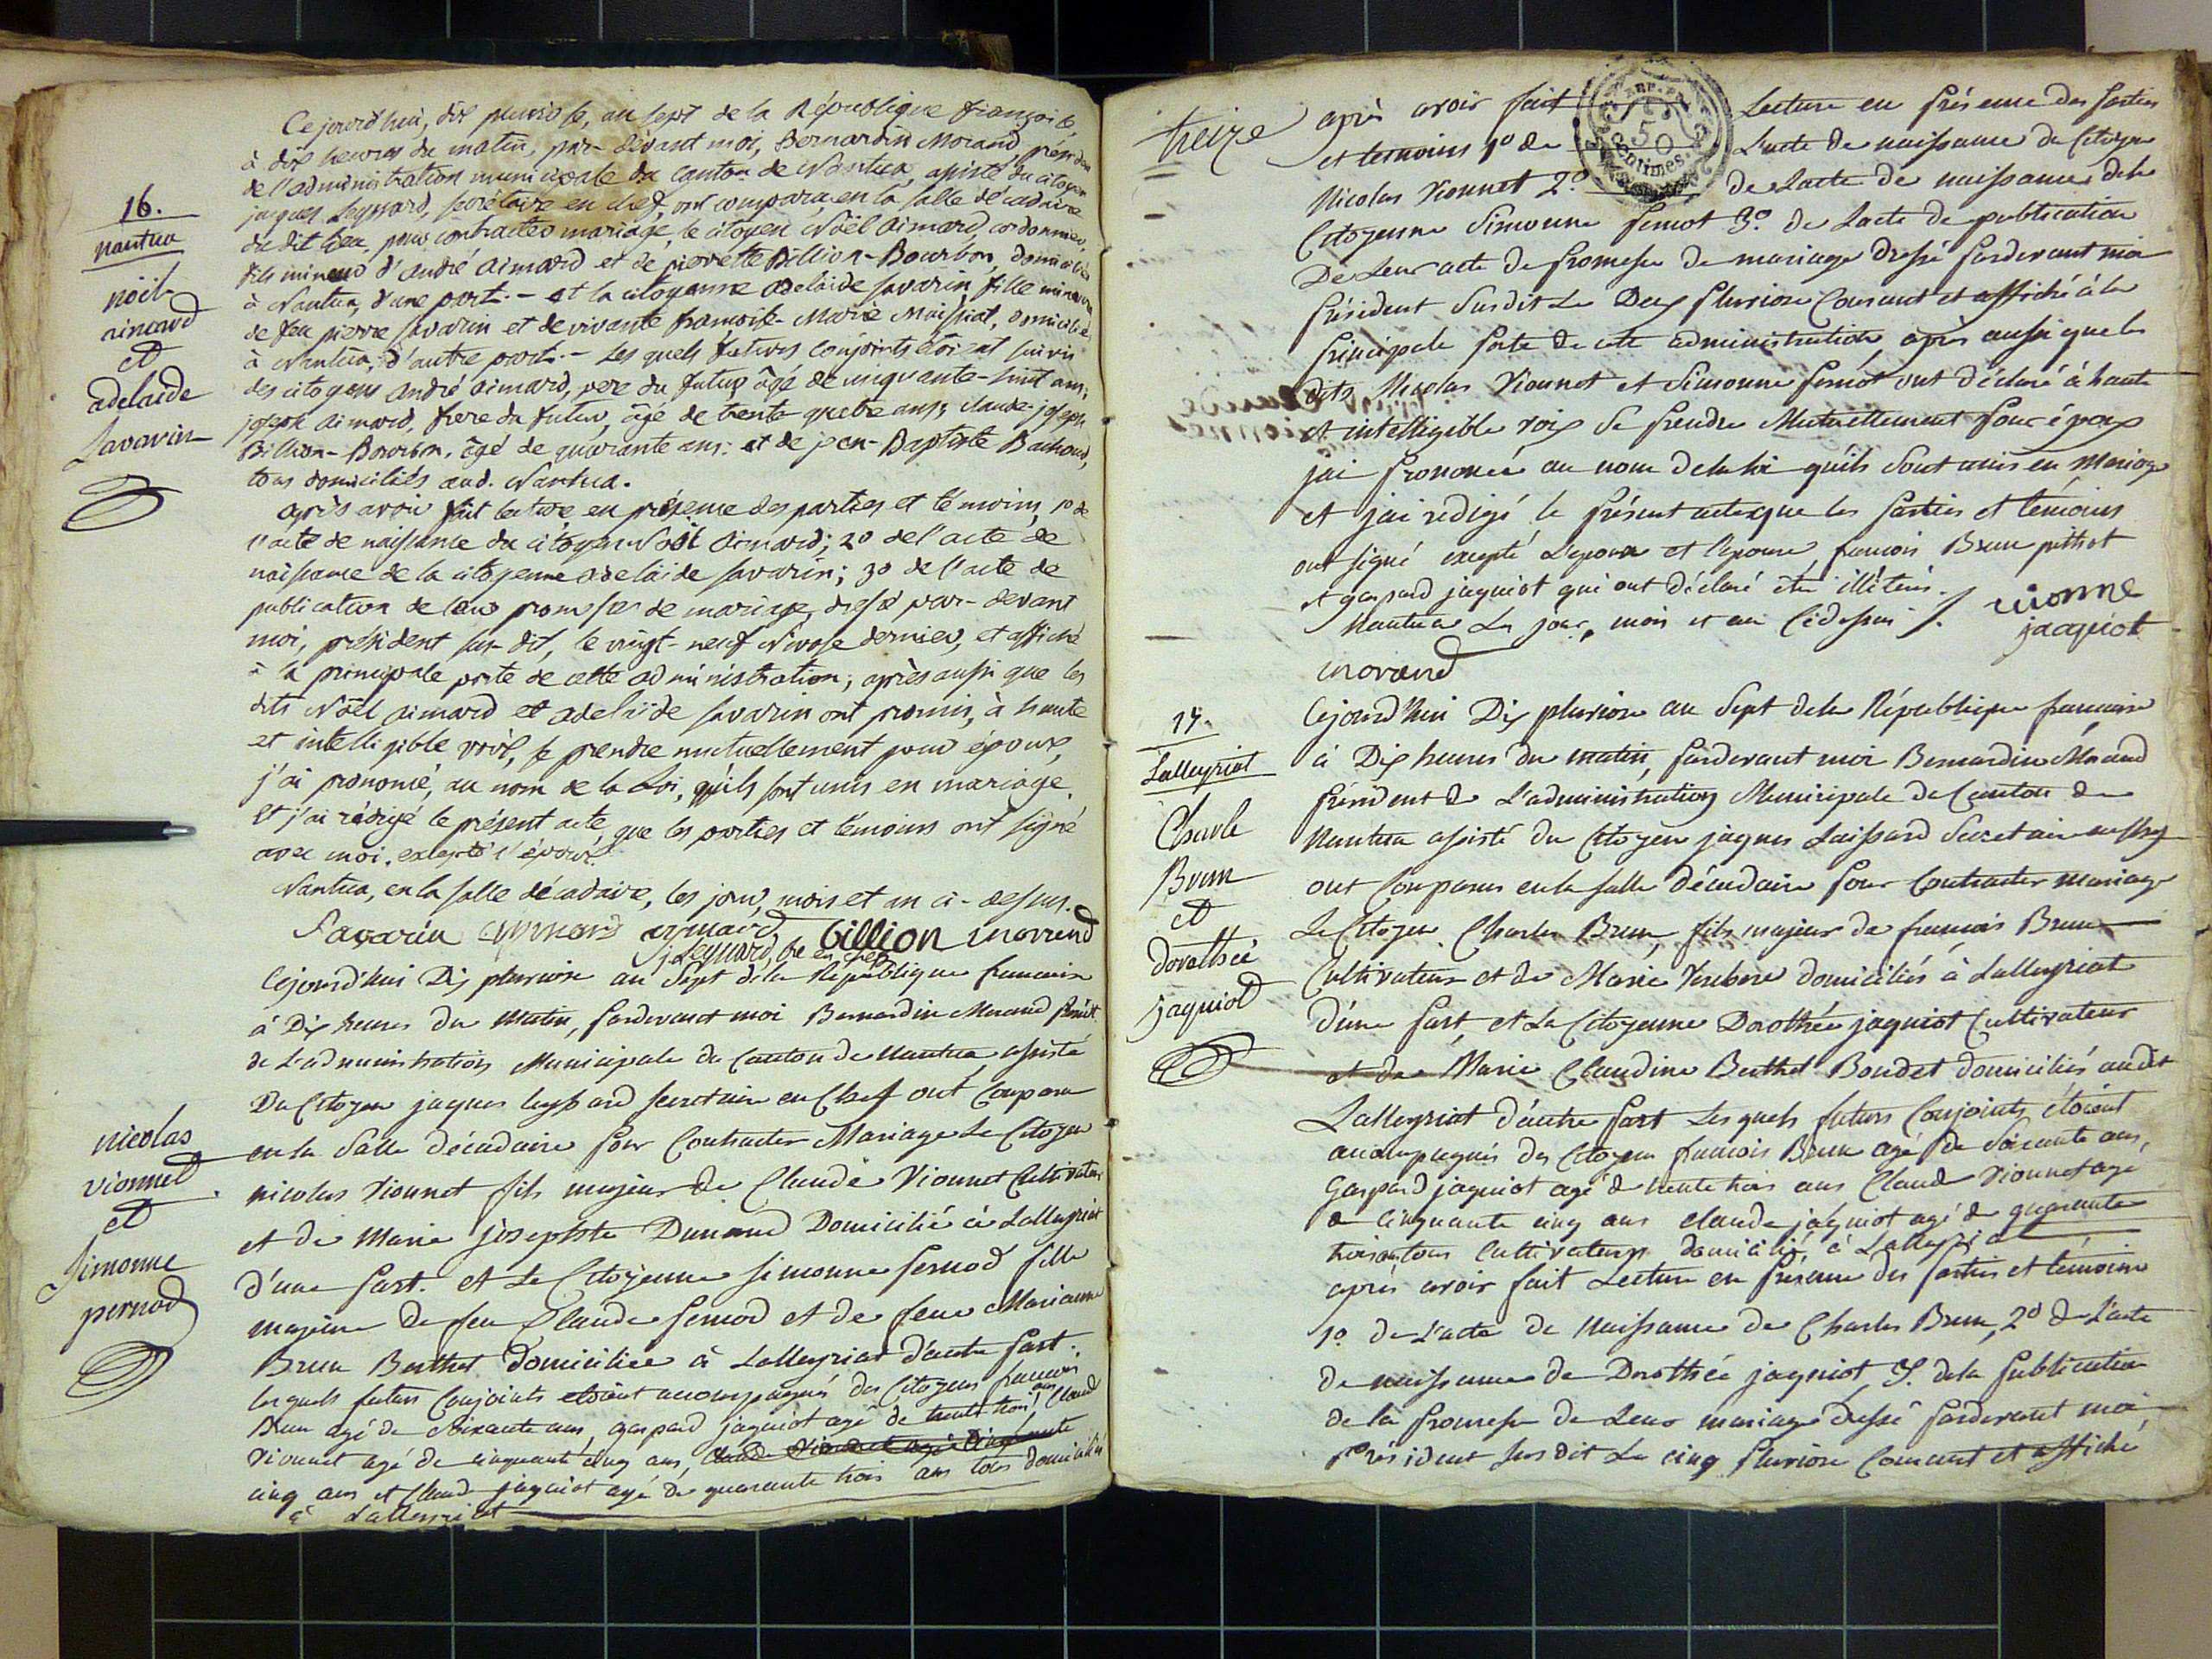 16.
nantua
noël
aimard
et
adelaide
Savarin
Cejourd'hui, dix pluviose, an sept de la République françoise,
à dix heures du matin, par-devant moi, Bernardin Morand, président
de l'administration municipale du canton de Nantua, assisté du citoyen
jaques Leyssard, secrétaire en chef, ont comparu, en la salle décadaire
du dit lieu, pour contracter mariage, le citoyen Noël Aimard, cordonnier,
fils mineur d'andré Aimard et de pierrette Billion-Bourbon, domicilié
à Nantua, d'une part. - et la citoyenne adelaide Savarin, fille mineure
de feu pierre Savarin et de vivante francoise-Marie Maissiat, domiciliée
à Nantua, d'autre part. - Les quels futurs conjoints étoient suivis
des citoyens andré aimard, pere du futur, âgé de cinquante-huit ans,
joseph aimard, frere du futur, âgé de trente quatre ans; claude-joseph
Billion-Bourbon, âgé de quarante ans; et de jean-Baptiste Bachoud,
tous domiciliés aud. Nantua.
après avoir fait lecture en présence des parties et témoins, 1º de
l'acte de naissance du citoyen Noël Aimard; 2º de l'acte de
naissance de la citoyenne adelaide Savarin; 3º de l'acte de
publication de leur promesse de mariage, dressé par-devant
moi, président sus-dit, le vingt-neuf Nivose dernier, et affiché
à la principale porte de cette administration; après aussi que les
dits Noël Aimard et adelaïde Savarin ont promis, à haute
et intelligible voix, se prendre mutuellement pour époux,
j'ai prononcé, au nom de la Loi, qu'ils sont unis en mariage.
Et j'ai rédigé le présent acte que les parties et témoins ont signé
avec moi, excepté l'époux.
Nantua, en la salle décadaire, les jour, mois et an ci-dessus.
Savarin aymard aymard billion morand
j. Leyssard, sre en chef
nicolas
vionnet
et
Simonne
pernod
Cejourd'hui Dix pluviose an Sept dela République francaise
à Dix heures du Matin, pardevant moi Bernardin Morand présidt.
de L'administration Municipale du Canton de Nantua assisté
Du Citoyen jaques leyssard secretaire en Chef ont Comparu
en la Salle décadaire pour Contracter Mariage Le Citoyen
nicolas Vionnet fils majeur de Claude Vionnet Cultivateur
et de Marie josephte Dunand Domicilié à Lalleyriat
d'une part. et La Citoÿenne simonne pernod fille
majeure de feu Claude pernod et de feue Marianne
Brun Berthet domiciliée à Lalleyriat d'autre part.
lesquels futurs Conjoints etoient accompagnés des Citoyens francois
Brun agé de Soixante ans, gaspard jaquiot agé de trente trois ans Claud
Vionnet agé de cinquante cinq ans, Claude Vionnet agé Cinquante
cinq ans et Claud jaquiot agé de quarante trois ans tous domiciliés
à Lalleyriat
treize
après avoir fait Lecture en présence des parties
et temoins 1º de L'acte de naissance du Citoyen
Nicolas Vionnet 2º de Lacte de naissance dela
Citoyenne Simonne pernot 3º. de Lacte de publication
De Leur acte de promesse de mariage Dressé pardevant moi
président Susdit Le Deux pluviose Courant et affiché à la
principale porte de cette administration, après aussi que les
dits Nicolas Vionnet et Simonne pernot ont déclaré à haute
et intelligible voix Se prendre Mutuellement pour époux
jai prononcé au nom dela loi quils Sont unis en Mariage
et jai redigé le présent acte que les parties et témoins
ont signé excepté L'epoux et l'epouse francois Brun
et gaspard jaquiot qui ont déclaré être illétérés.
Nantua Les jour, mois et an Cidessus
vionne
jacquiot
morand
RÉP. FRA.
50
Centimes.
17.
Lalleyriat
Charle
Brun
et
dorothée
jaquiot
Cejourd'hui Dix pluviose an Sept dela République francaise
à Dix heures du matin, pardevant moi Bernardin Morand
président de L'administration Municipale du Canton de
Nantua assisté du Citoyen jaques Laissard Secretaire en chef
ont Comparus en la salle décadaire pour Contracter mariage
Le Citoyen Charles Brun, fils majeur de francois Brun
Cultivateur et de Marie domiciliés à Lalleyriat
d'une part, et La Citoyenne Dorothée jaquiot Cultivateur
et de Marie Claudine Berthet Bondet domiciliés audit
Lalleyriat d'autre part Les quels futurs Conjoints étoient
accompagnés des Citoyens francois Brun agé de Soixante ans,
Gaspard jaquiot agé de trente trois ans Claud Vionnet agé
de Cinquante cinq ans claude jaquiot agé de quarante
trois ans tous Cultivateurs domicilié à Lalleyriat
après avoir fait Lecture en présence des parties et témoins
1º de L'acte de Naissance de Charles Brun, 2º de L'acte
de naissance de Dorothée jaquiot, 3º. dela publication
de la promesse de Leur mariage dressé pardevant moi,
président sus dit Le cinq pluviose Courant et affiché